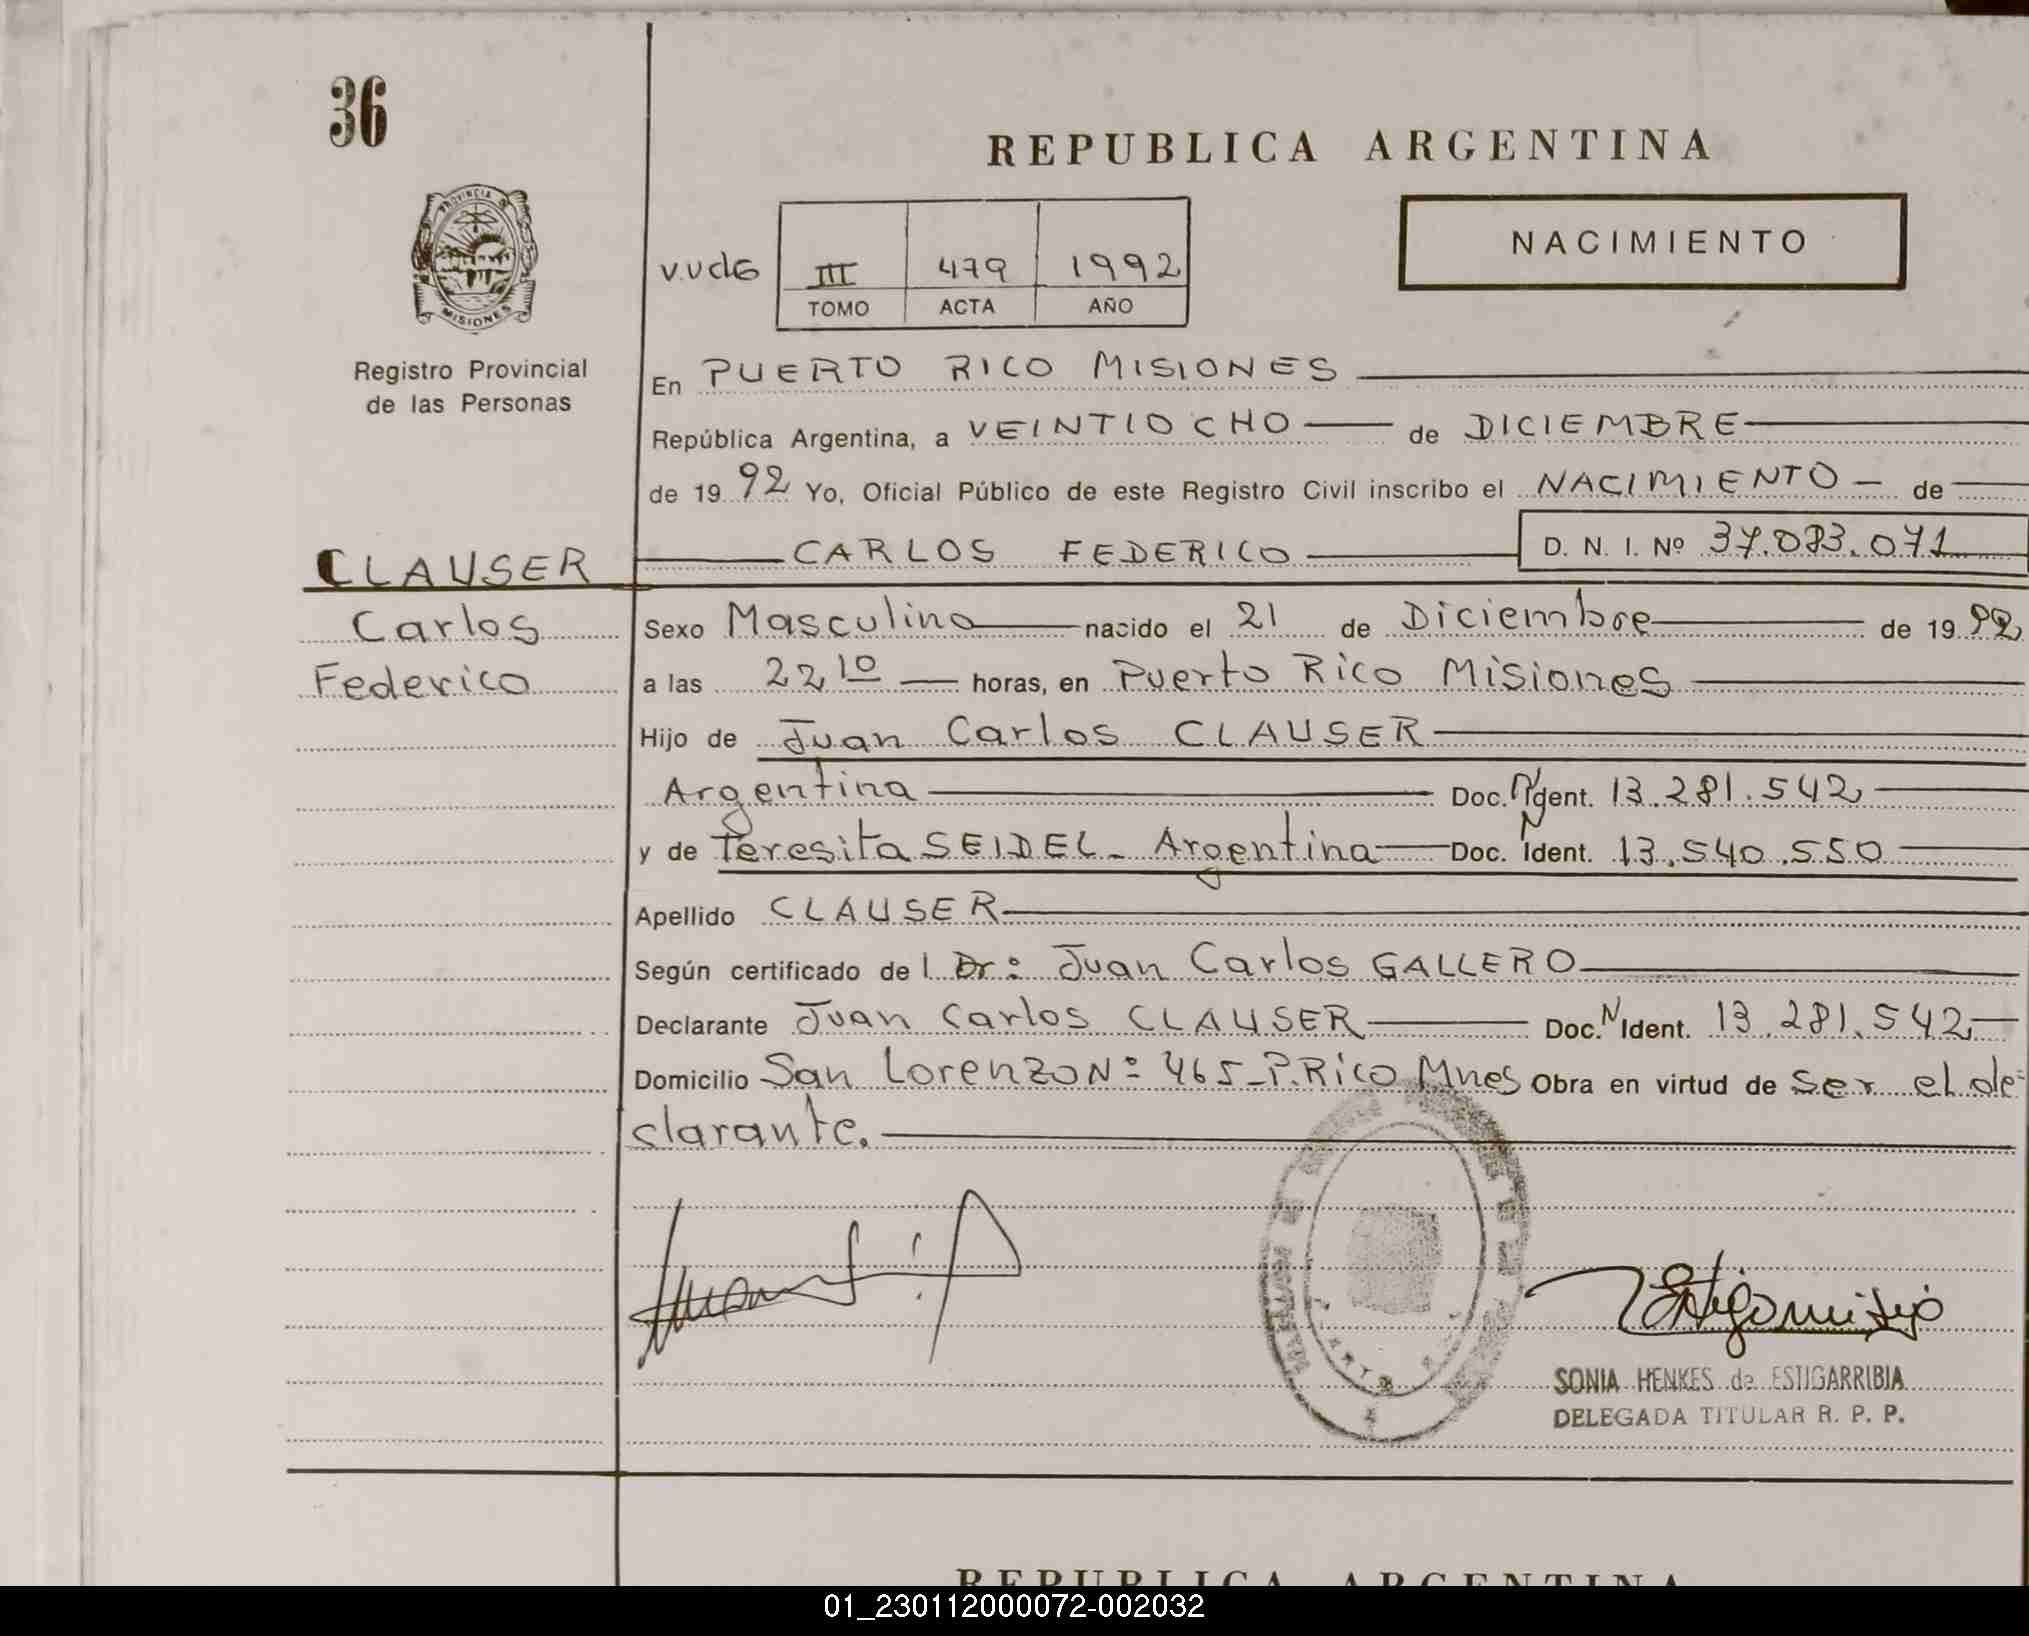 36
REPUBLICA ARGENTINA
PROVINCIA DE
MISIONES
NACIMIENTO
III 479 1992
TOMO ACTA AÑO
Registro Provincial
de las Personas
En PUERTO RICO MISIONES
República Argentina, a VEINTIOCHO de DICIEMBRE
de 19 92 Yo, Oficial Público de este Registro Civil inscribo el NACIMIENTO - de
CLAUSER
CARLOS FEDERICO D. N. I. Nº 37.083.071
Carlos
Federico
Sexo Masculino nacido el 21 de Diciembre de 19 92
a las 22 10 horas, en Puerto Rico Misiones
Hijo de Juan Carlos CLAUSER
Argentina Doc. N Ident. 13.281.542
y de Teresita SEIDEL - Argentina Doc. N Ident. 13.540.550
Apellido CLAUSER
Según certificado de l Dr: Juan Carlos GALLERO
Declarante Juan Carlos CLAUSER Doc. N Ident. 13.281.542
Domicilio San Lorenzo Nº 465-P.Rico Mnes Obra en virtud de ser el de=
clarante.
SONIA HENKES de ESTIGARRIBIA
DELEGADA TITULAR R. P. P.
REPUBLICA ARGENTINA
01_230112000072-002032